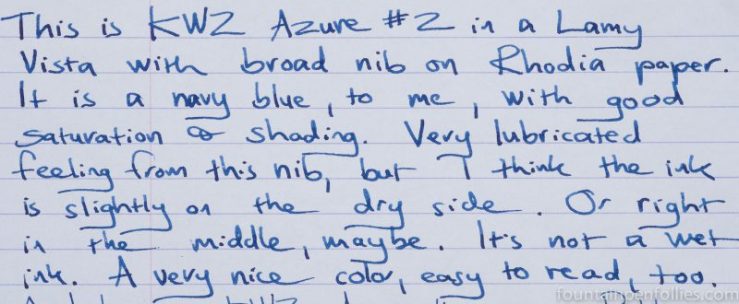 This is KWZ Azure #2 in a Lamy
Vista with broad nib on Rhodia paper.
It is a navy blue, to me, with good
saturation & shading. Very lubricated
feeling from this nib, but I think the ink
is slightly on the dry side. Or right
in the middle, maybe. It's not a wet
ink. A very nice color, easy to read, too.
fountainpenfollies.com